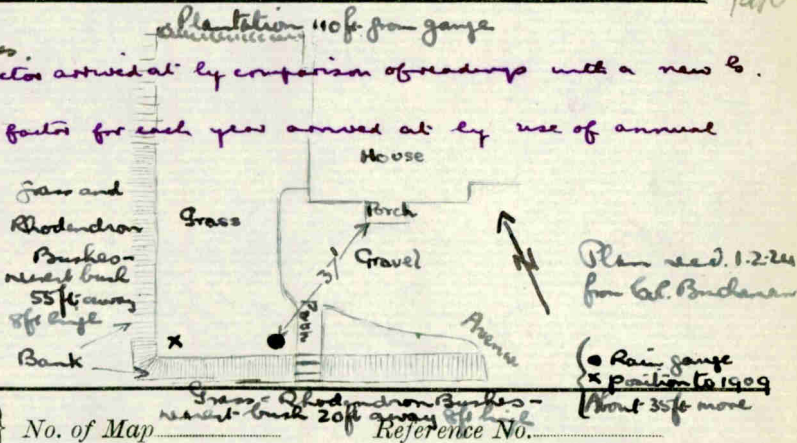 Plantation 110 ft from gauge
ctor arrived at by comparison of readings with a new G.
factor for each year arrived at by use of annual
House
Grass and
Rhododendron
Bushes-
nearest bush
55 ft; away
8ft high
Bank
Grass
Porch
37'
Gravel
Path
N
Avenue
Plan recd. 1.2.24
from Col. Buchanan
● Rain gauge
x position to 1909
About 35ft more
Grass - Rhododendron Bushes -
nearest bush 20ft away 8ft high
No. of Map
Reference No.